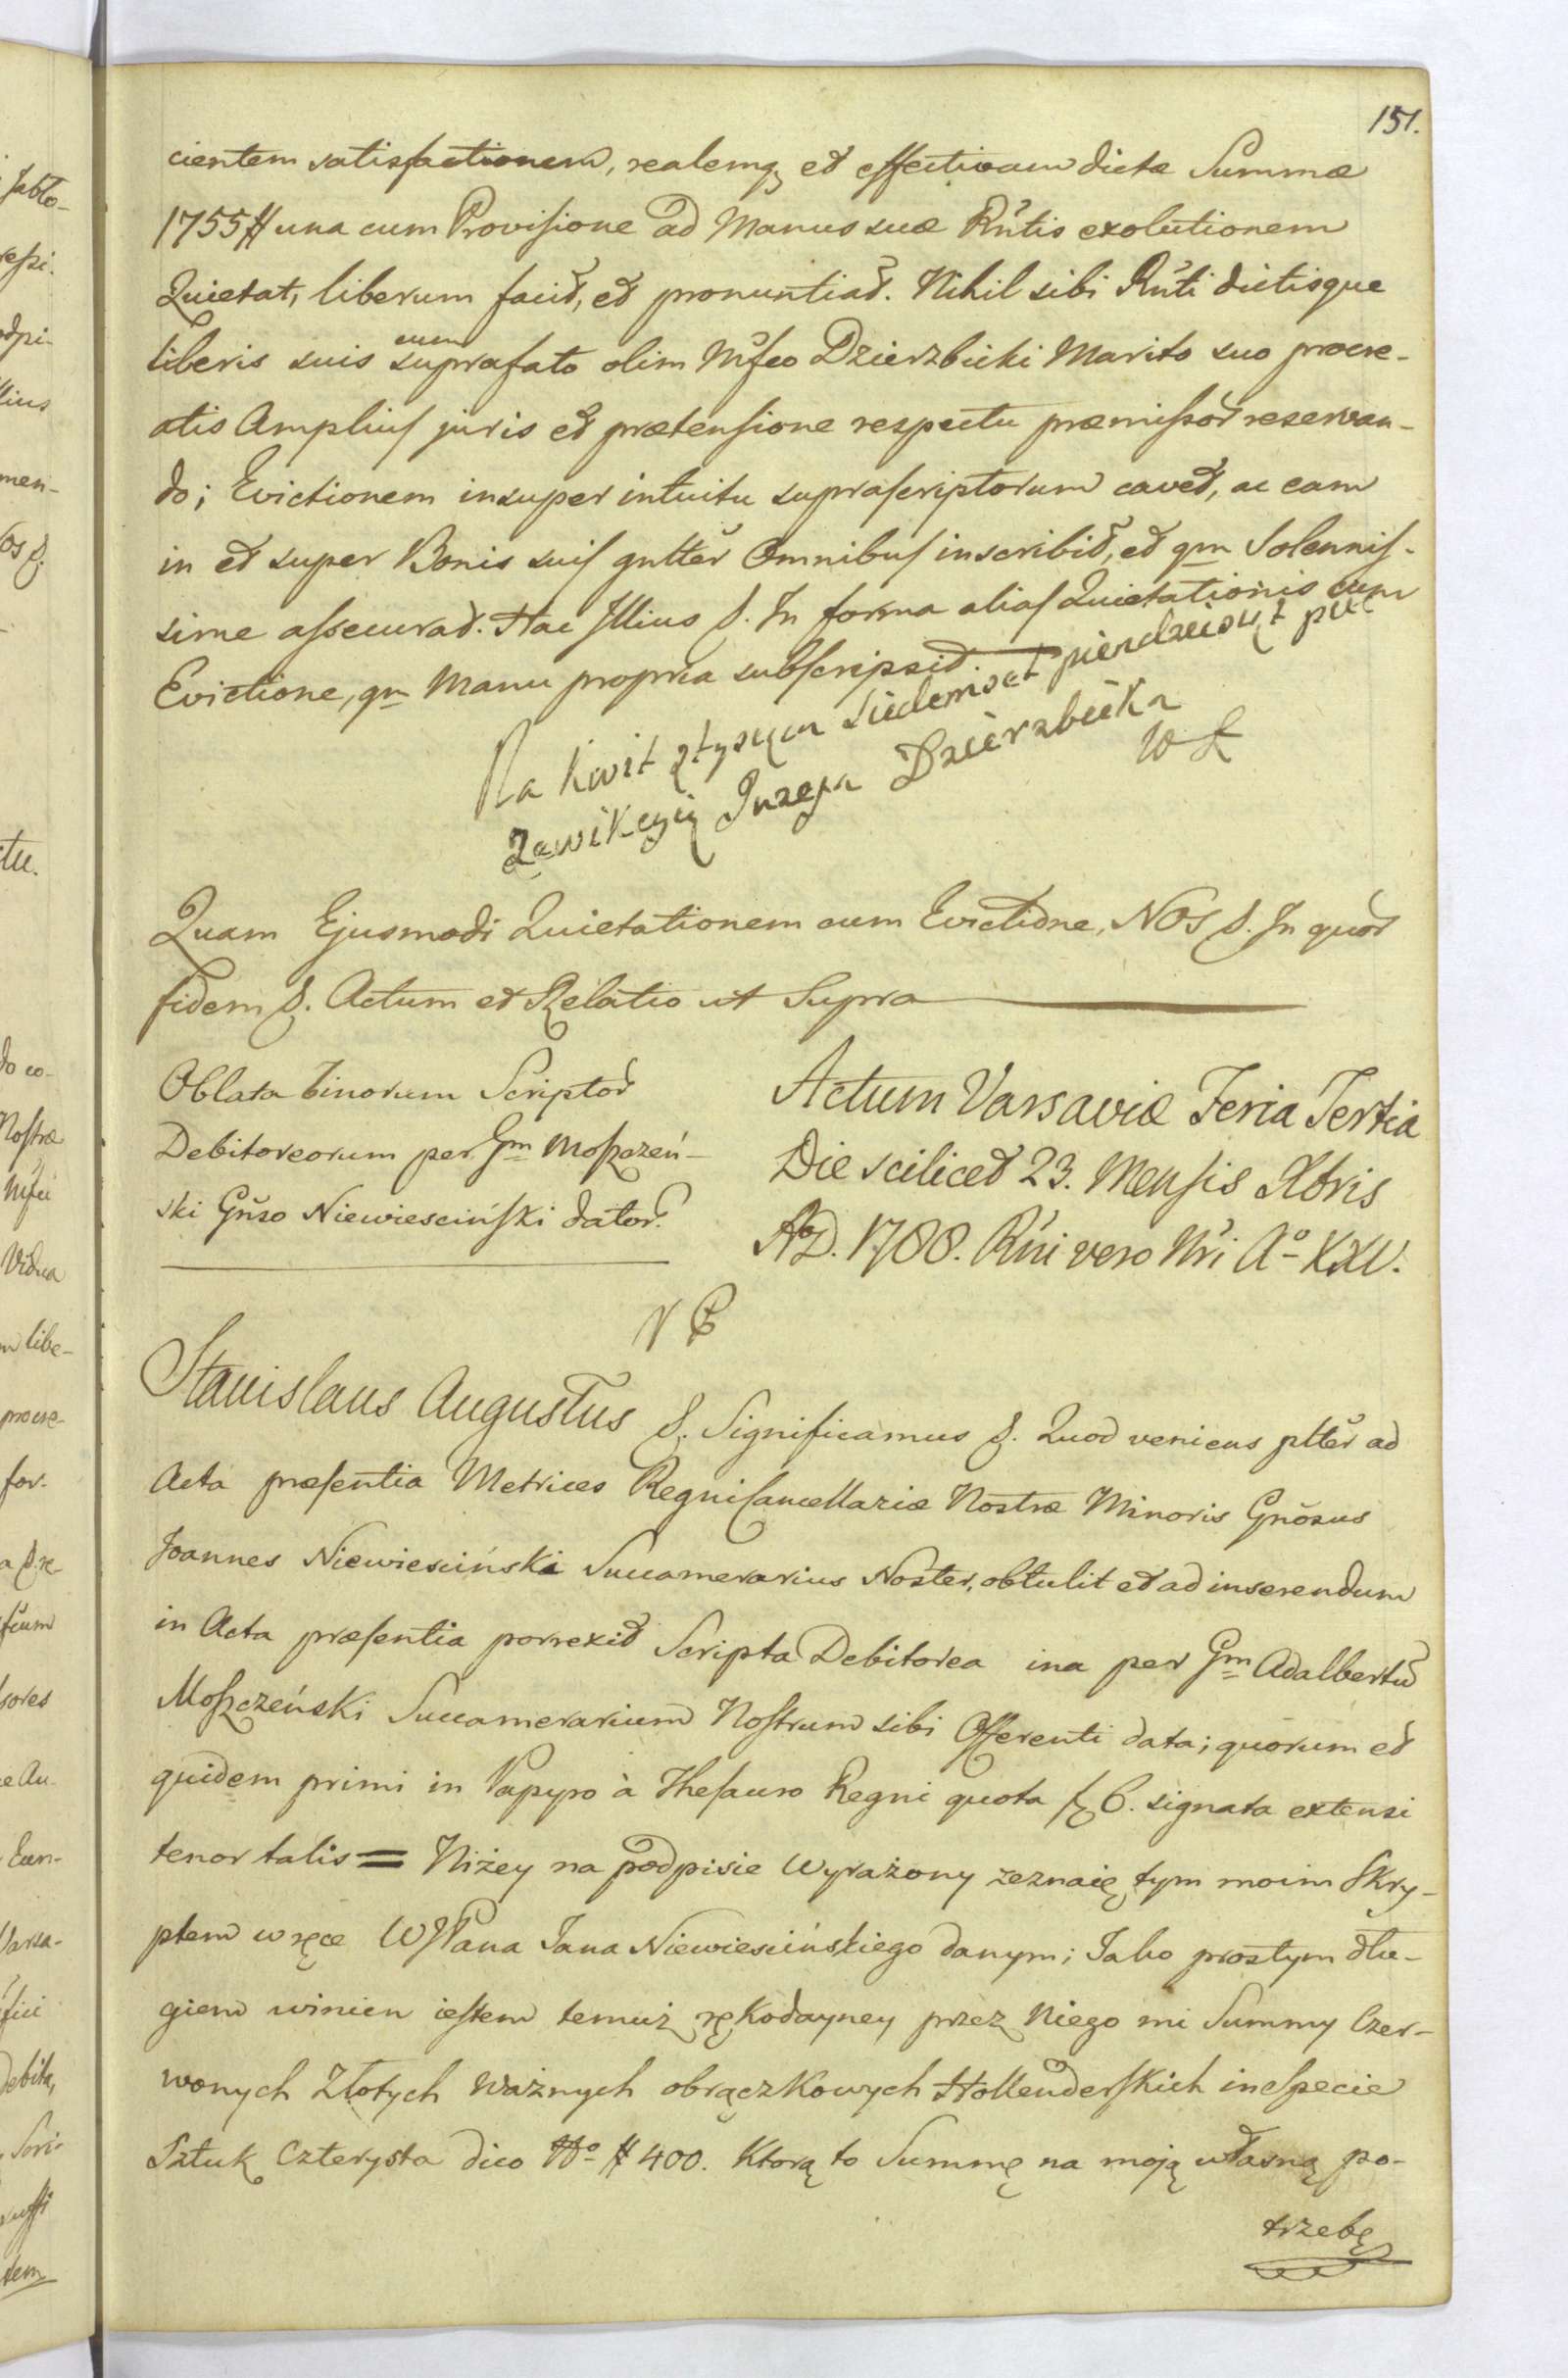 151.
cientem satisfactionem, realemq; et effectivam dictæ Summæ
1755 # una cum Provisione ad Manus suæ Rn̄tis exolutionem
Quietat, liberum facit, et pronuntiat. Nihil sibi Rn̄ti dictisque
liberis suis cum suprafato olim Mḡfco Dzierzbicki Marito suo procre-
atis Amplius juris et prætensione respectu præmissor̄ reservan-
do; Evictionem insuper intuitu suprascriptorum cavet, ac eam
in et super Bonis suis gnltēr Omnibus inscribit, et qm̄ Solennis-
sime assecurat. Hac Illius &. In forma alias Quietationis cum
Evictione, qm̄ Manu propria subscripsit.
Na kwit z tysyca siedemset piendziesiąt pięc
zewikcyią Juzefa Dzierzbicka
Quam Ejusmodi Quietationem cum Evictione, Nos &. In quor̄
fidem &. Actum et Relatio ut Supra
Oblata binorum Scriptor̄
Debitoreorum per Gm̄ Moszczeń-
ski Gn̄so Niewiesciński dator̄.
Actum Varsaviæ Feria Tertia
Die scilicet 23. Mensis Xbris
A͞o D. 1788. Rn̄i vero Nr̄i A͞o XXV.
Stanislaus Augustus &. Significamus &. Quod veniens pltēr ad
Acta præsentia Metrices Regni Cancellariæ Nostræ Minoris Gn̄osus
Joannes Niewiesciński Succamerarius Noster, obtulit et ad inserendum
in Acta præsentia porrexit Scripta Debitorea ina per Gm̄ Adalbertū
Moszczeński Succamerarium Nostrum sibi Offerenti data; quorum et
quidem primi in Papyro à Thesauro Regni quota fz 6. signata extensi
tenor talis = Niżey na podpisie Wyrażony zeznaię tym moim Skry-
ptem w ręce WJPana Jana Niewiescińskiego danym; Jako prostym dłu-
giem winien iestem temuż rękodayney przez Niego mi Summy Czer-
wonych Złotych Ważnych obrączkowych Hollenderskich in Specie
Sztuk Czterysta dico N͞o # 400. Ktorą to Summę na moją własną po-
trzebę